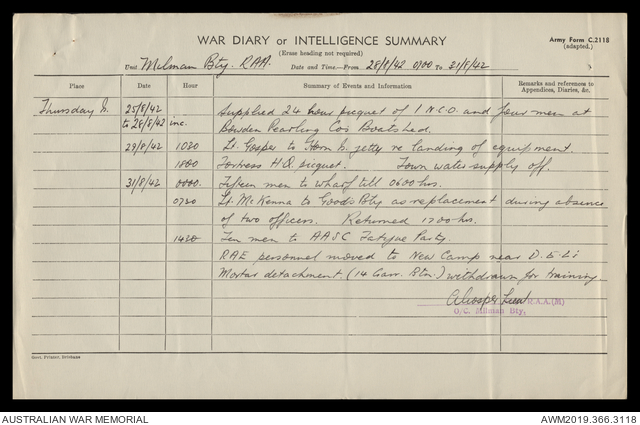 WAR DIARY or INTELLIGENCE SUMMARY
(Erase heading not required)
Army Form C.2118
(adapted.)
Unit Milman Bty. RAA. Date and Time—From 28/8/42 0100 To 31/8/42
Place Date Hour Summary of Events and Information Remarks and references to Appendices, Diaries, &c.
Thursday Is. 25/8/42 Supplied 24 hour picquet of 1 N.C.O. and four men at
to 28/8/42 inc. Bowden Pearling Co's Boatshed.
29/8/42 1030 Lt. Gosper to Horn Is. jetty re landing of equipment
1800 Fortress H.Q. picquet. Town water supply off.
31/8/42 0000. Fifteen men to wharf till 0600 hrs.
0730 Lt. McKenna to Goods Bty as replacement during absence
of two officers. Returned 1700 hrs.
1430 Ten men to AASC Fatigue Party.
RAE personnel moved to New Camp near
Mortar detachment (14 Garr. Btn.) withdrawn for training.
AGosper Lieut R.A.A.(M)
O/C. Milman Bty.
Govt. Printer, Brisbane
AUSTRALIAN WAR MEMORIAL AWM2019.366.3118